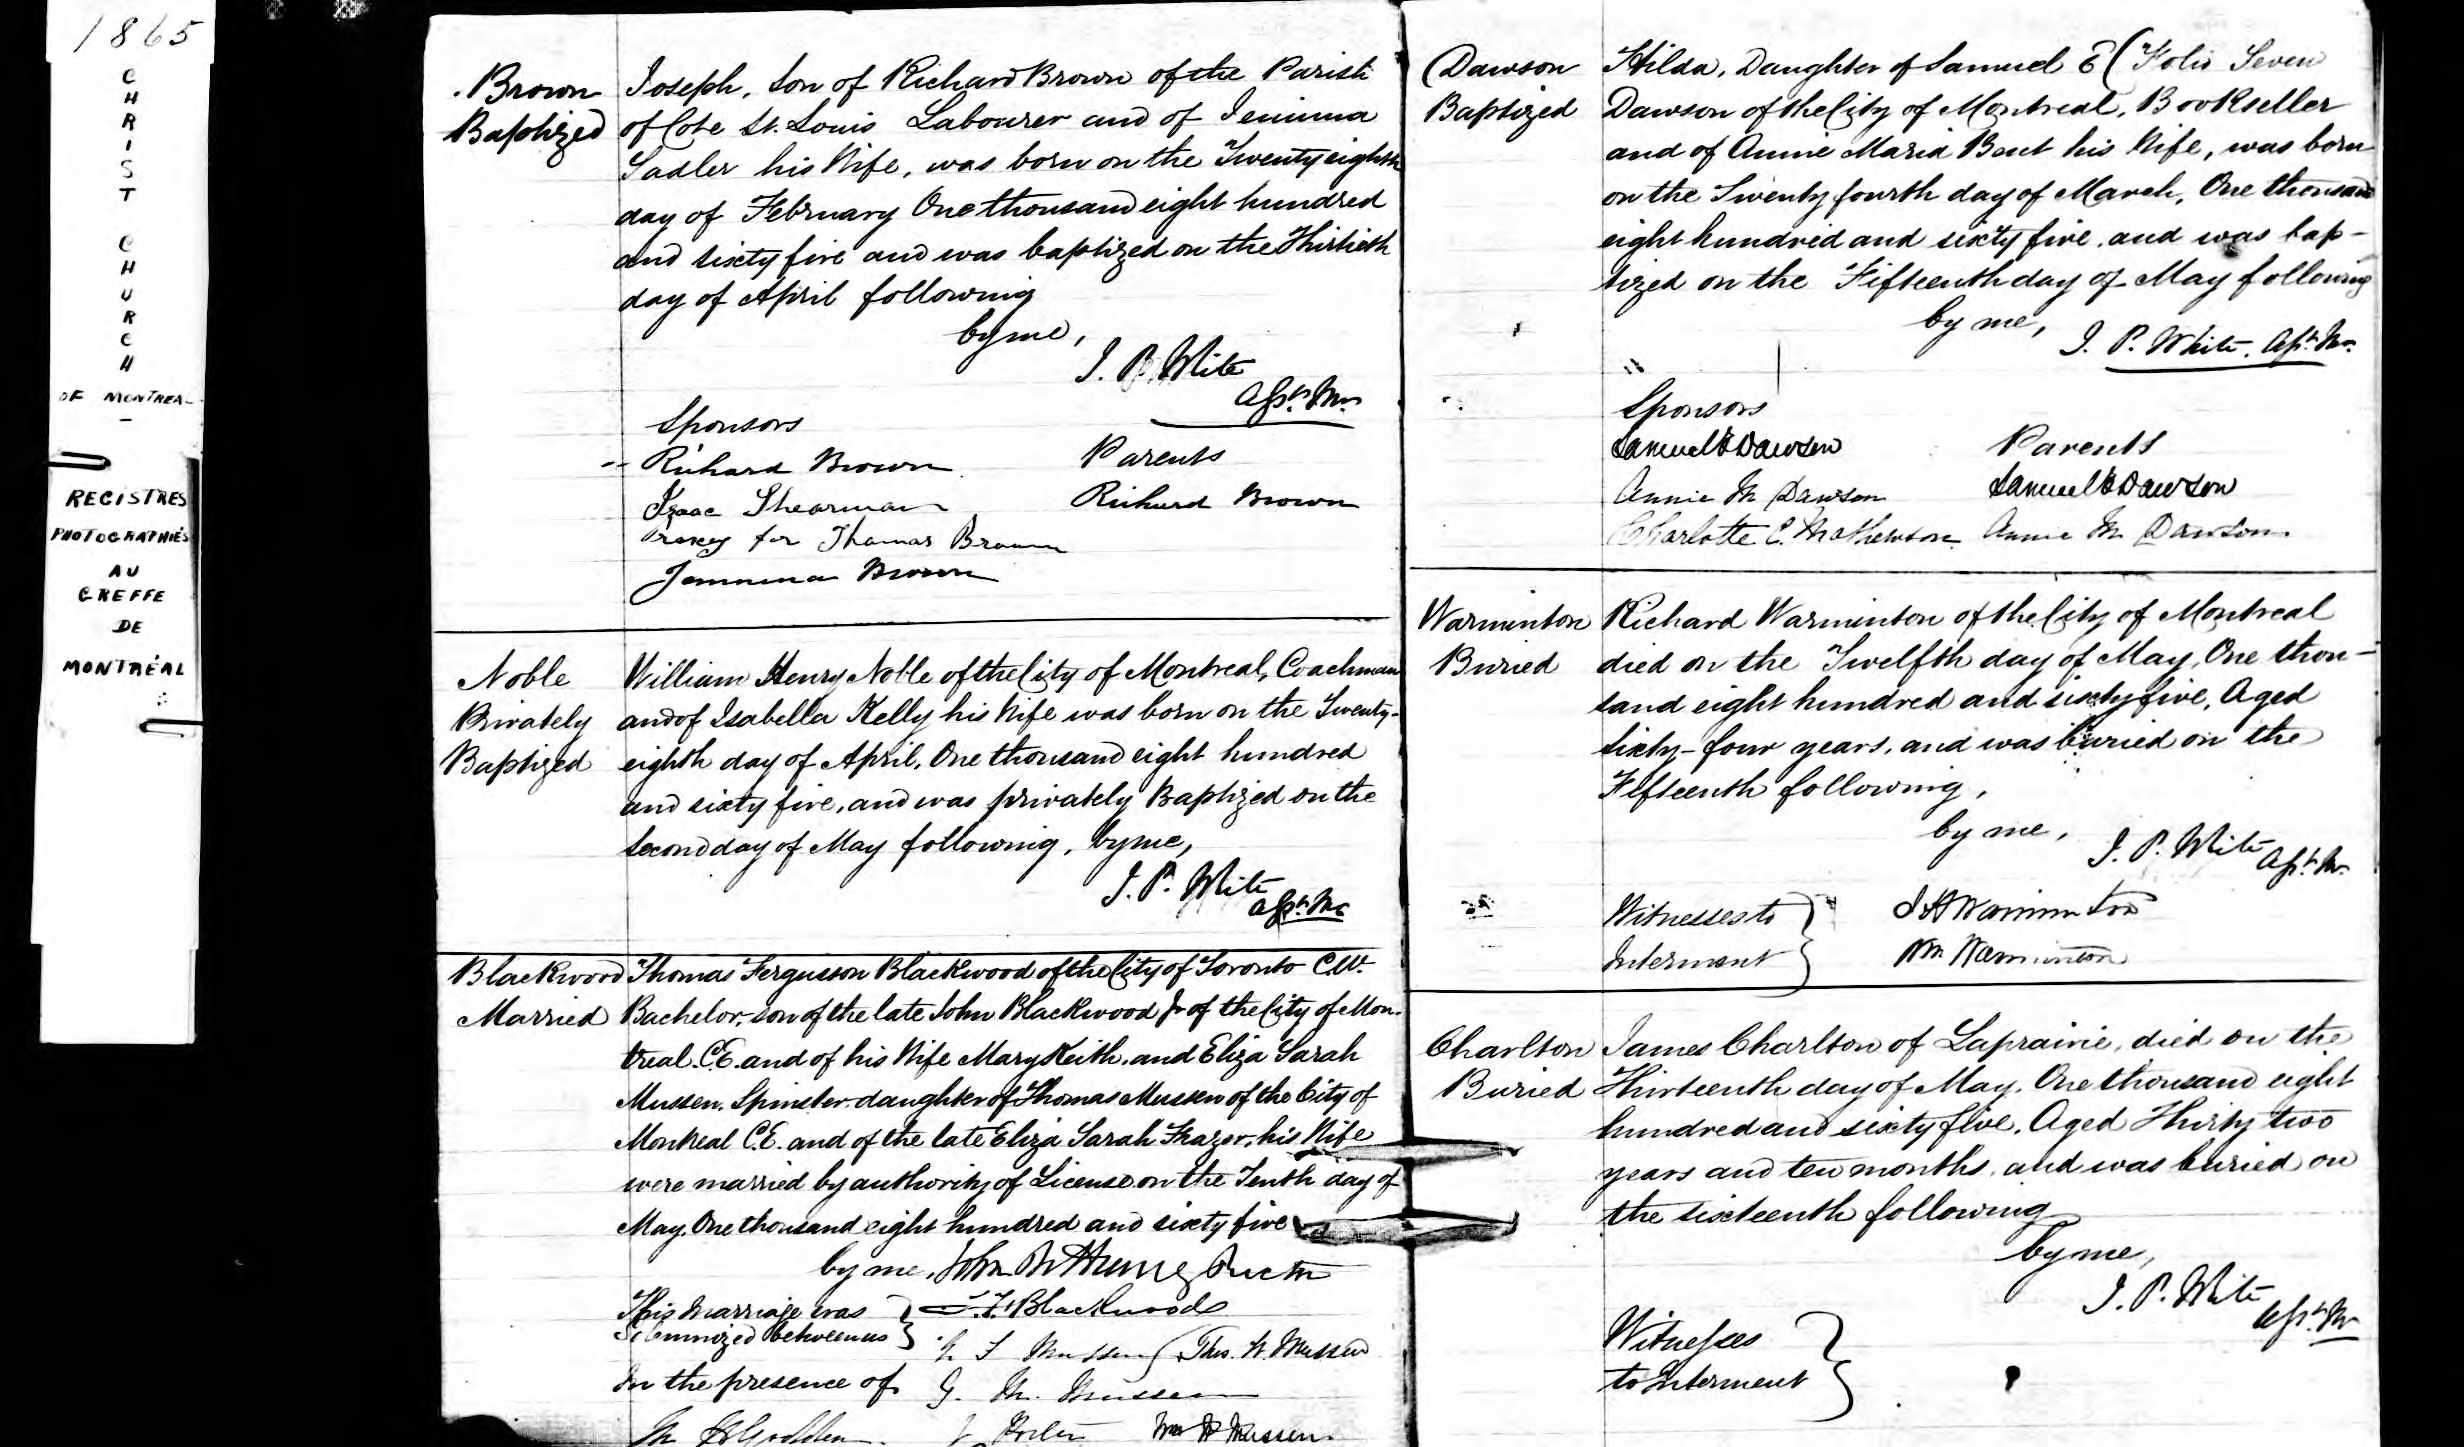 1865
CHRIST
CHURCH
OF MONTREA
REGISTRES
PHOTOGRAPHIÉS
AU
GREFFE
DE
MONTRÉAL
Brown
Baptized
Joseph, Son of Richard Brown of the Parish
of Cote St. Louis Labourer and of Jemima
Sadler his Wife, was born on the Twenty eighth
day of February One thousand eight hundred
and sixty five and was baptized on the Thirtieth
day of April following
by me,
J. P. White
Asst. Mr.
Sponsors
Richard Brown
Isaac Shearman
Proxey for Thomas Brown
Jemmima Brown
Parents
Richard Brown
Noble
Privately
Baptized
William Henry Noble of the City of Montreal, Coachman
and of Isabella Kelly his Wife was born on the Twenty-
eighth day of April, One thousand eight hundred
and sixty five, and was privately Baptized on the
second day of May following, by me,
J. P. White
Asst. Mr.
Blackwood
Married
Thomas Fergusson Blackwood of the City of Toronto C.W.
Bachelor, son of the late John Blackwood Jr of the City of Mon-
treal C.E. and of his Wife Mary Keith, and Eliza Sarah
Mussen, Spinster, daughter of Thomas Mussen of the City of
Montreal C.E. and of the late Eliza Sarah Frazer, his Wife
were married by authority of License on the Tenth day of
May, One thousand eight hundred and sixty five
by me, John Bethune, Rector
This marriage was
Solemnized between us
T. F. Blackwood
Mussen Thos. W. Mussen
In the presence of
G. M. Mussen
Wm H Mussen
Dawson
Baptized
Hilda, Daughter of Samuel E (Folio Seven
Dawson of the City of Montreal, Bookseller
and of Annie Maria Bent his Wife, was born
on the Twenty fourth day of March, One thousand
eight hundred and sixty five, and was bap-
tized on the Fifteenth day of May following
by me,
J. P. White, Asst. Mr.
Sponsors
Samuel E Dawson
Annie M Dawson
Charlotte E. Mathewson
Parents
Samuel E Dawson
Annie M Dawson
Warminton
Buried
Richard Warminton of the City of Montreal
died on the Twelfth day of May, One thou-
sand eight hundred and sixty five, Aged
sixty-four years, and was buried on the
Fifteenth following,
by me,
J. P. White
Asst. Mr.
Witnesses to
Interment
J H Warminton
Wm Warminton
Charlton
Buried
James Charlton of Laprairie, died on the
Thirteenth day of May, One thousand eight
hundred and sixty five, Aged Thirty two
years and ten months, and was buried on
the sixteenth following
by me,
J. P. White
Asst. Mr
Witnesses
to Interment